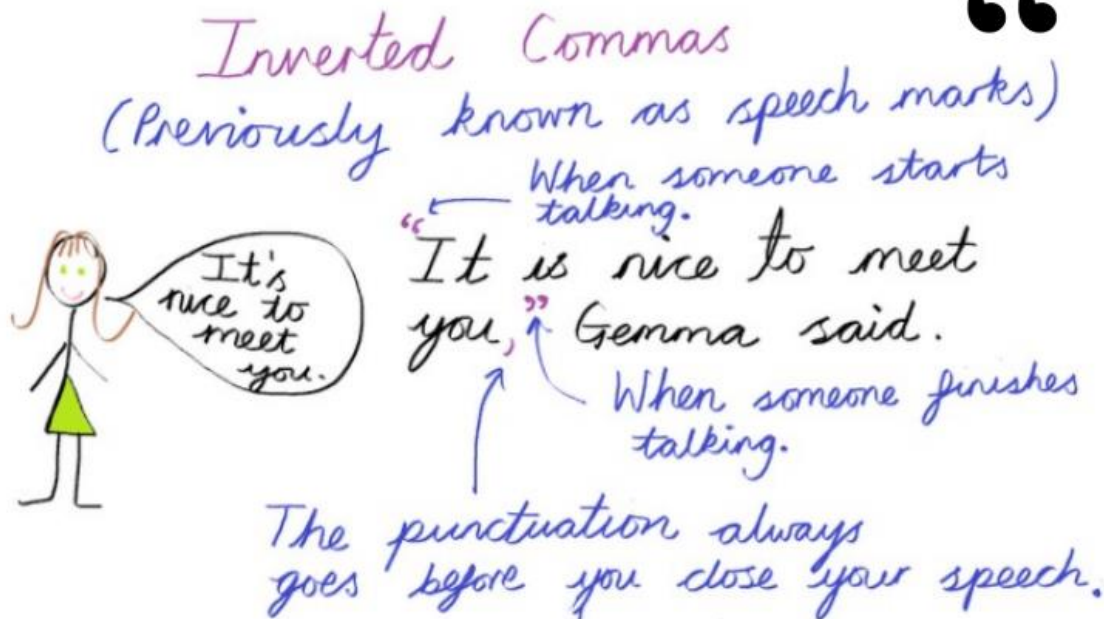 Inverted Commas
(Previously known as speech marks)
When someone starts
talking.
It's
nice to
meet
you.
“It is nice to meet
you,” Gemma said.
When someone finishes
talking.
The punctuation always
goes before you close your speech.